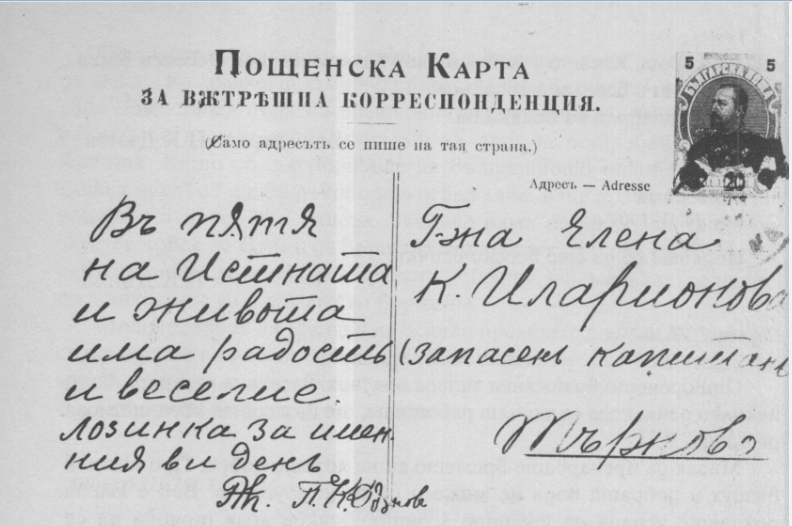 5 5
БЪЛГАРИЯ
Пощенска Карта
ЗА ВѪТРѢШНА КОРРЕСПОНДЕНЦИЯ.
(Само адресътъ се пише на тая страна.)
Адресъ — Adresse
Въ пѫтя
на Истината
и живота
има радость
и веселие.
лозинка за имен
ния ви день
П. К.
Г-жа Елена
К. Иларионова
(запасенъ капитанъ
Търново